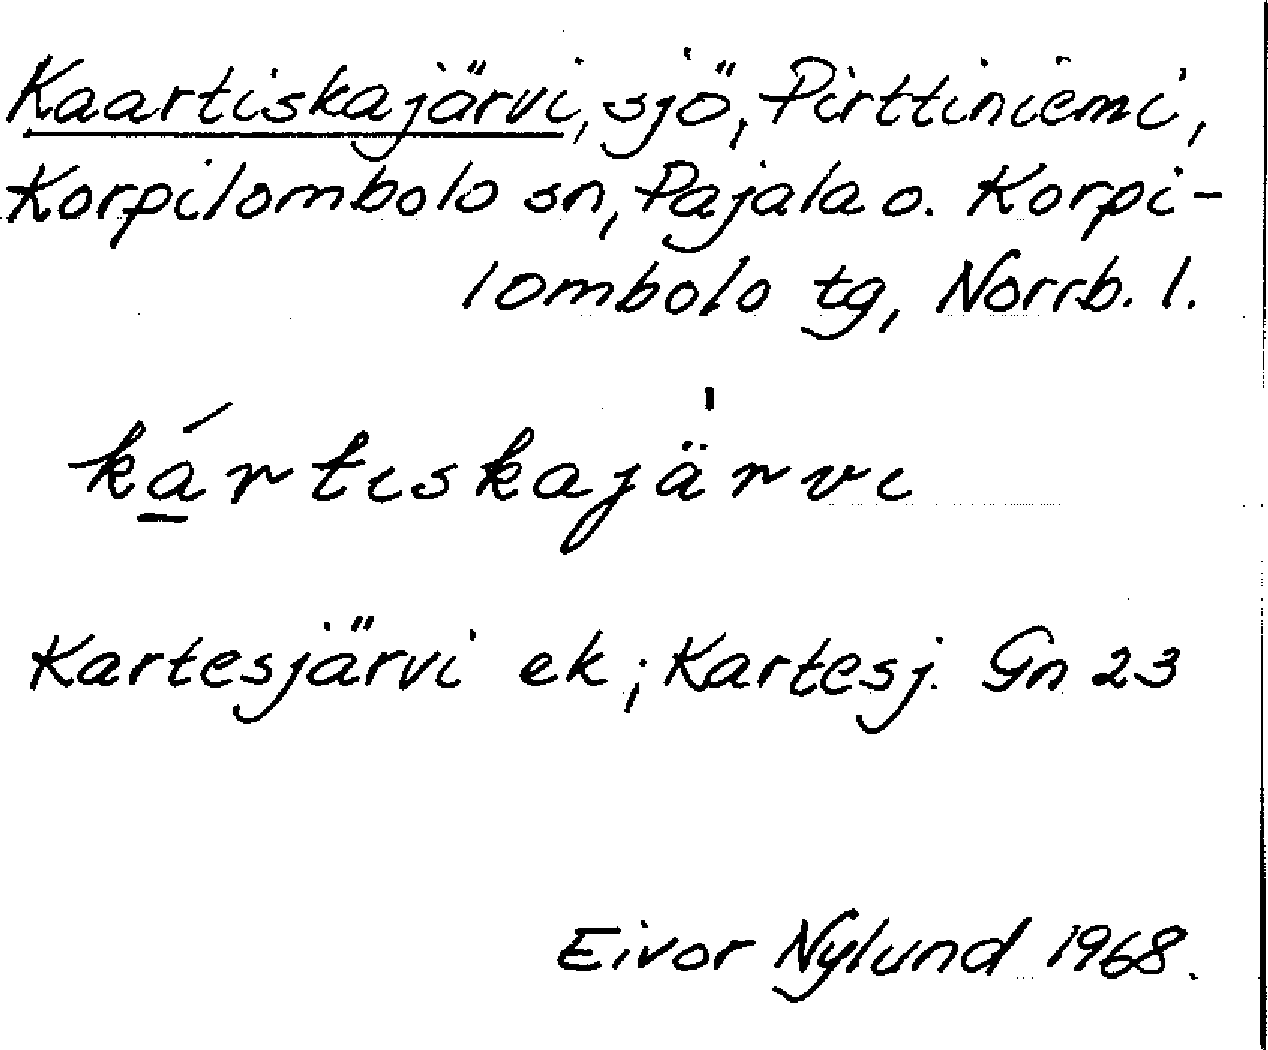 Kaartiskajärvi, sjö, Pirttiniemi,
Korpilombolo sn, Pajala o. Korpi-
lombolo tg, Norrb. l.
ká̱rtiskajä̍rvi
Kartesjärvi ek; Kartesj. Gn 23
Eivor Nylund 1968.